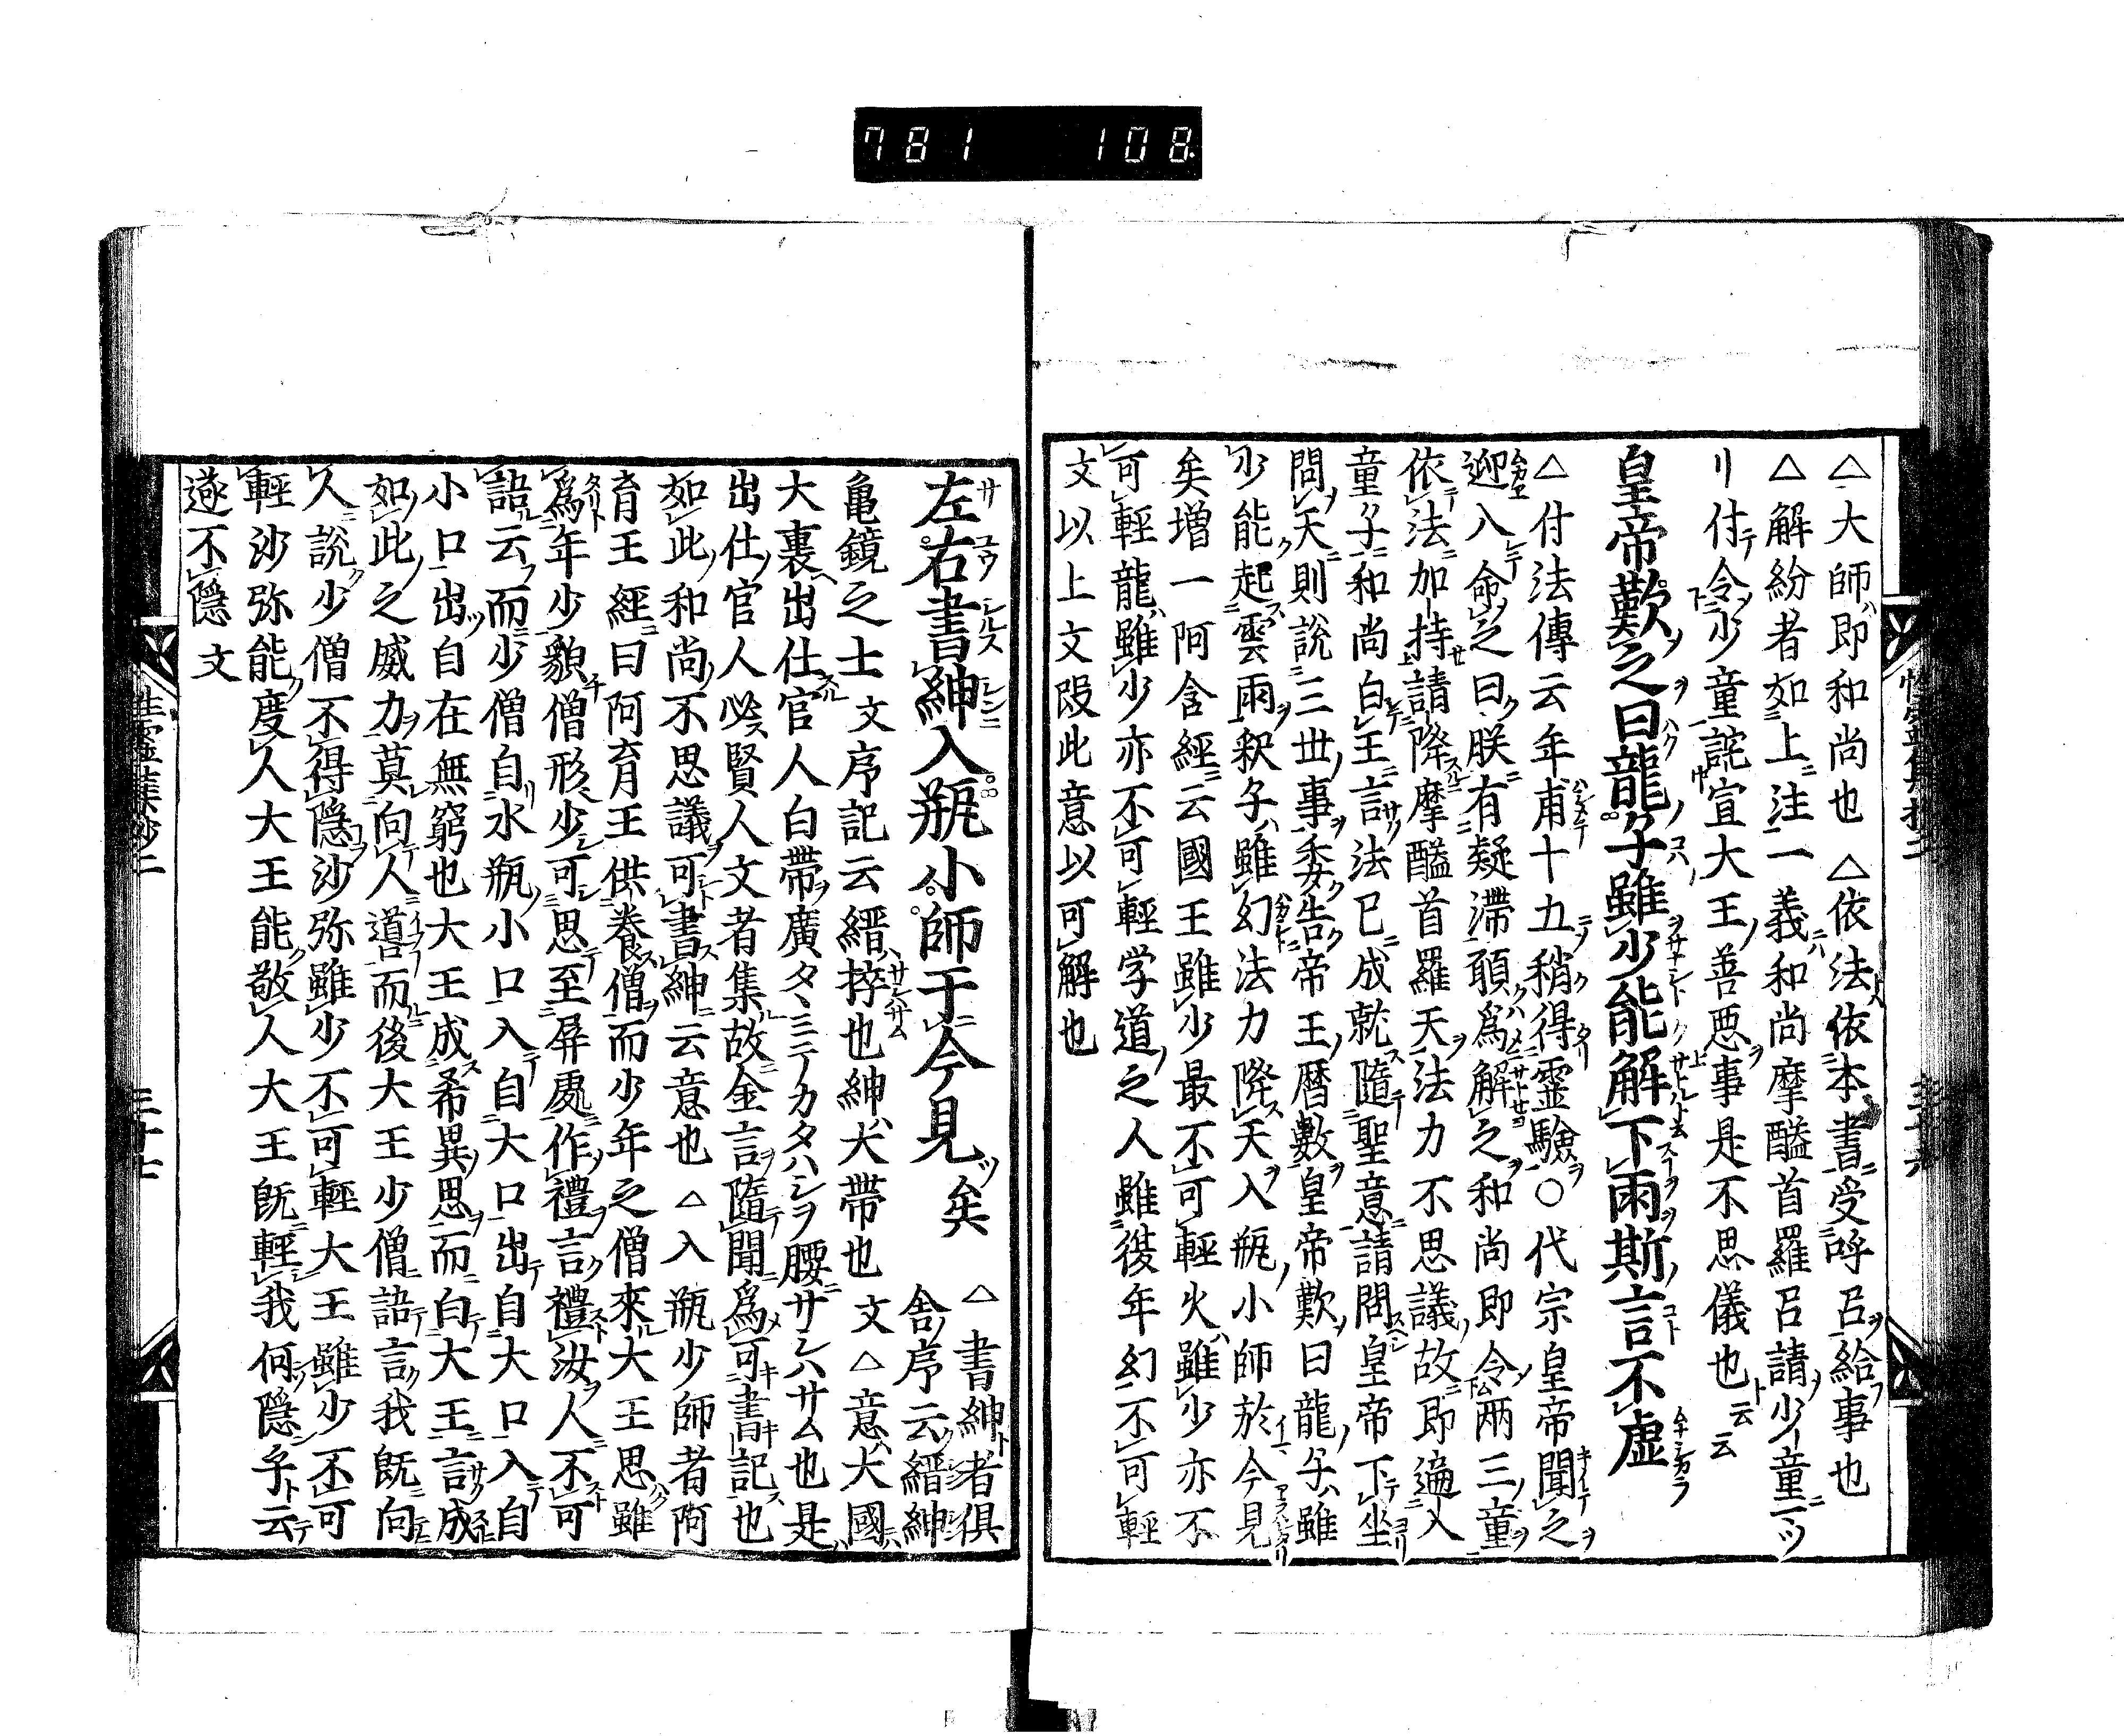 781 108
△大師ハ即和尚也 △依法依本書受呼召給事也
△解紛者如上注一義和尚摩醯首羅召請少童ニツ
リ付テ令少童詫宣大王善悪事是不思儀也ト云云
皇帝歎之曰龍子雖少能解下雨斯言不虚
△付法傳云年甫十五稍得霊驗○代宗皇帝聞之
迎入命之曰朕有疑滞願為解之和尚即令两三童
依法加持請降摩醯首羅天法力不思議故即遍入
童子和尚白王言法已成就隨聖意請問皇帝下坐
問天則說三世事委告帝王暦數皇帝歎曰龍子雖
少能起雲雨釈子雖幻法力降天入瓶小師於今見
矣増一阿含經云國王雖少最不可輕火雖少亦不
可輕龍雖少亦不可輕学道之人雖後年幻不可輕
文以上文段此意以可解也
左右書紳入瓶小師于今見矣 △書紳者俱舎序云縉紳
亀鏡之士文序記云縉ハ捽也紳ハ大帯也文△意ハ大國
大裏ヘ出仕スル官人白帯ヲ廣タヽミテカタハシヲ腰ニサシハサム也是
出仕官人必賢人文者集故金言隨聞為可書記也
如此和尚不思議可書紳云意也 △入瓶少師者阿
育王經曰阿育王供養僧而少年之僧來大王思雖
為年少貌僧形少可思至屏處作禮言禮汝人不可
語云而少僧自水瓶小口入自大口出自大口入自
小口出自在無窮也大王成希異思而白大王言成
如此之威力莫向人道而後大王少僧語言我既向
人說少僧不得隠沙弥雖少不可輕大王雖少不可
輕沙弥能度人大王能敬人大王既輕我何隠乎ト云テ
遂不隠文
三十七